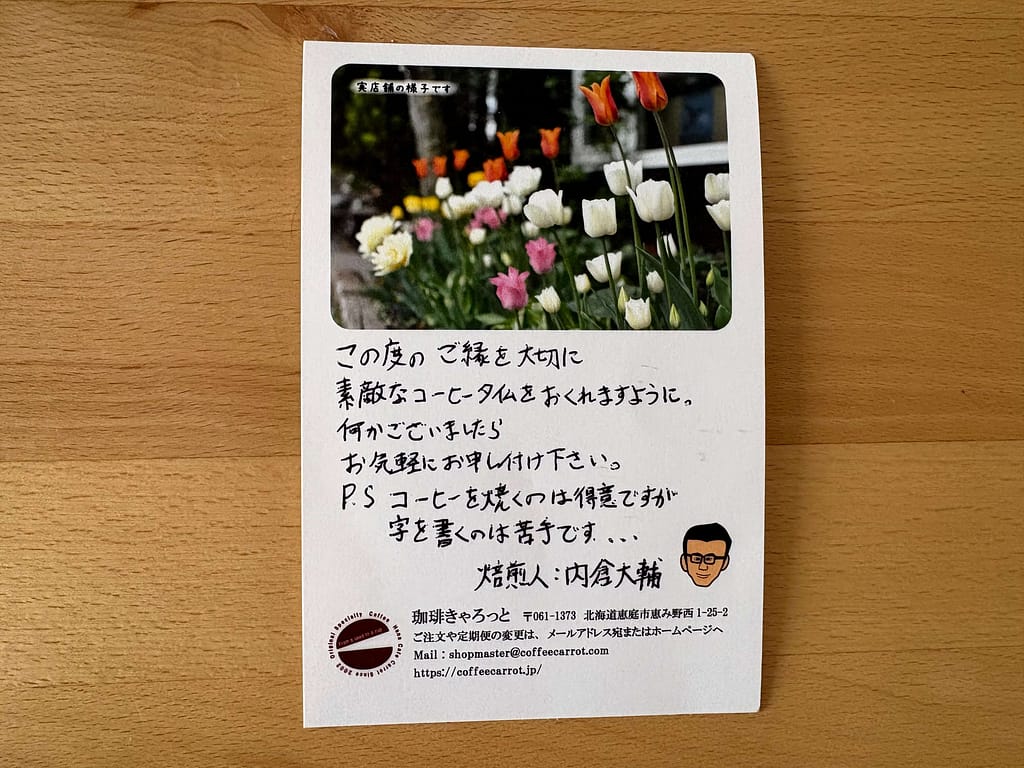 実店舗の様子です
この度のご縁を大切に
素敵なコーヒータイムをおくれますように。
何かございましたら
お気軽にお申し付け下さい。
P.S コーヒーを焼くのは得意ですが
字を書くのは苦手です...
焙煎人:内倉大輔
珈琲きゃろっと 〒061-1373 北海道恵庭市恵み野西1-25-2
ご注文や定期便の変更は、メールアドレス宛またはホームページへ
Mail:shopmaster@coffeecarrot.com
https://coffeecarrot.jp/
Original Specialty Coffee Home Cafe Carrot Since 2003
From a seed to a cup